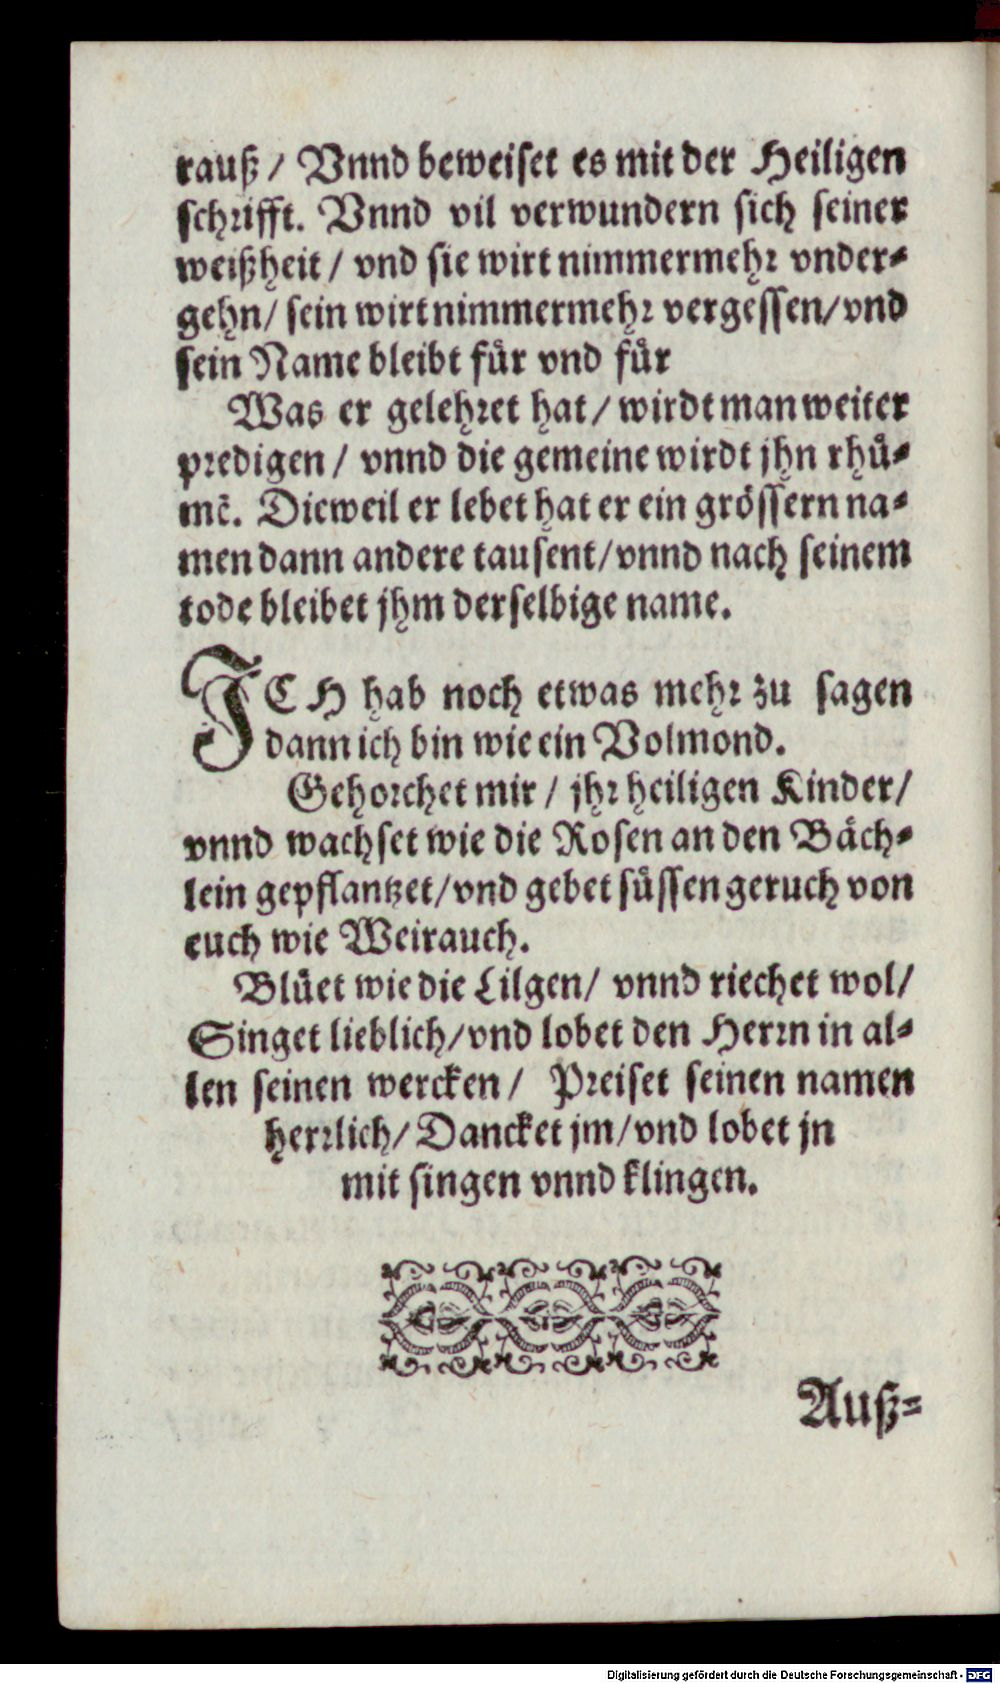 rauß / Vnnd beweiset es mit der Heiligen
schrifft. Vnnd vil verwundern sich seiner
weißheit / vnd sie wirt nimmermehr vnder-
gehn / sein wirt nimmermehr vergessen / vnd
sein Name bleibt fuͤr vnd fuͤr
Was er gelehret hat / wirdt man weiter
predigen / vnnd die gemeine wirdt jhn rhuͤ-
mẽ. Dieweil er lebet hat er ein groͤssern na-
men dann andere tausent / vnnd nach seinem
tode bleibet jhm derselbige name.
ICH hab noch etwas mehr zu sagen
dann ich bin wie ein Volmond.
Gehorchet mir / jhr heiligen Kinder /
vnnd wachset wie die Rosen an den Baͤch-
lein gepflantzet / vnd gebet suͤssen geruch von
euch wie Weirauch.
Bluͤet wie die Lilgen / vnnd riechet wol /
Singet lieblich / vnd lobet den Herrn in al-
len seinen wercken / Preiset seinen namen
herrlich / Dancket jm / vnd lobet jn
mit singen vnnd klingen.
Auß-
Digitalisierung gefördert durch die Deutsche Forschungsgemeinschaft - DFG